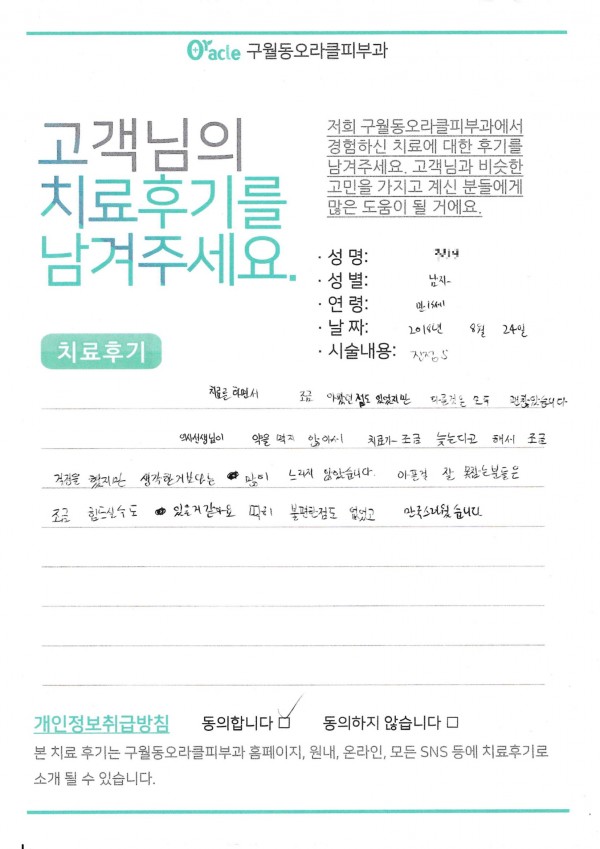 Oracle 구월동오라클피부과
고객님의
치료후기를
남겨주세요.
저희 구월동오라클피부과에서
경험하신 치료에 대한 후기를
남겨주세요. 고객님과 비슷한
고민을 가지고 계신 분들에게
많은 도움이 될 거에요.
· 성 명:
· 성 별: 남자
· 연 령: 만15세
· 날 짜: 2018년 8월 24일
· 시술내용:
치료후기
치료를 하면서 조금 아팠던 점도 있었지만 다른것은 모두 괜찮았습니다
의사선생님이 약을 먹지 않아서 치료가 조금 늦는다고 해서 조금
걱정을 했지만 생각한거보다는 많이 느리지 않았습니다. 아픈걸 잘 못참는분들은
조금 힘드실수도 있을거같아요 딱히 불편한점도 없었고 만족스러웠습니다
개인정보취급방침 동의합니다 동의하지 않습니다
본 치료 후기는 구월동오라클피부과 홈페이지, 원내, 온라인, 모든 SNS 등에 치료후기로
소개 될 수 있습니다.